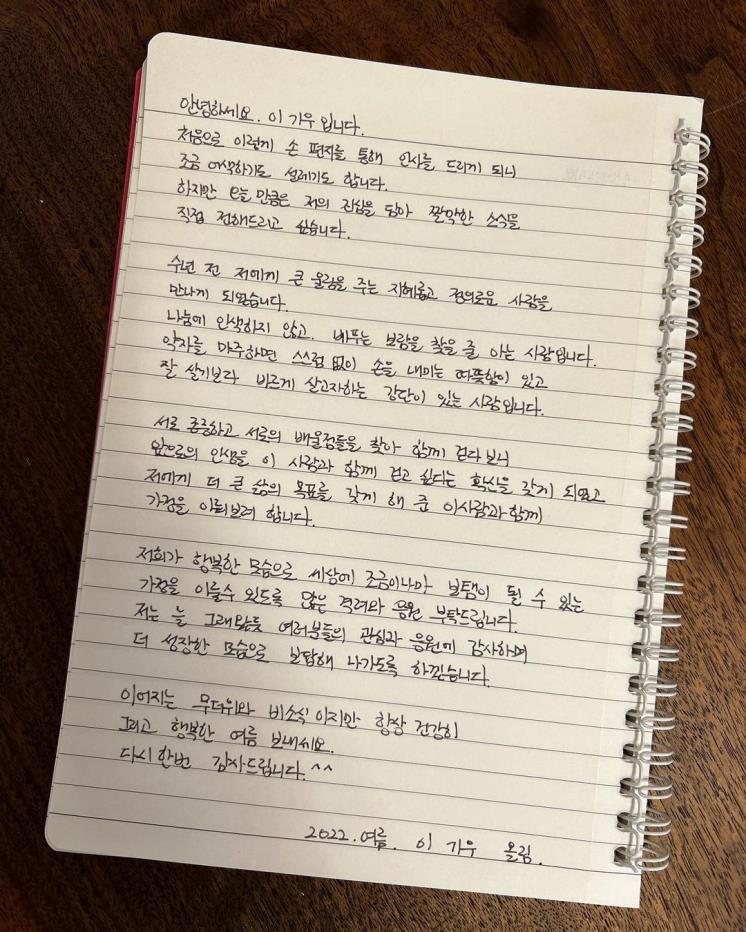 안녕하세요. 이 가우 입니다.
처음으로 이렇게 손 편지를 통해 인사를 드리게 되니
조금 어색하기도 설레기도 합니다.
하지만 오늘 만큼은 저의 진심을 담아 짤막한 소식을
직접 전해드리고 싶습니다.
수년 전 저에게 큰 울림을 주는 지혜롭고 정의로운 사람을
만나게 되었습니다.
나눔에 인색하지 않고. 베푸는 보람을 찾을 줄 아는 사람입니다.
약자를 마주하면 스스럼 없이 손을 내미는 따뜻함이 있고
잘 살기보다 바르게 살고자하는 강단이 있는 사람입니다.
서로 존중하고 서로의 배울점들을 찾아 함께 걷다 보니
앞으로의 인생을 이 사람과 함께 걷고 싶다는 확신을 갖게 되었고
저에게 더 큰 삶의 목표를 갖게 해 준 이사람과 함께
가정을 이뤄보려 합니다.
저희가 행복한 모습으로 세상에 조금이나마 보탬이 될 수 있는
가정을 이룰수 있도록 많은 격려와 응원 부탁드립니다.
저는 늘 그래왔듯 여러분들의 관심과 응원에 감사하며
더 성장한 모습으로 보답해 나가도록 하겠습니다.
이어지는 무더위와 비소식 이지만 항상 건강히
그리고 행복한 여름 보내세요.
다시한번 감사드립니다.^^
2022.여름. 이 가우 올림.